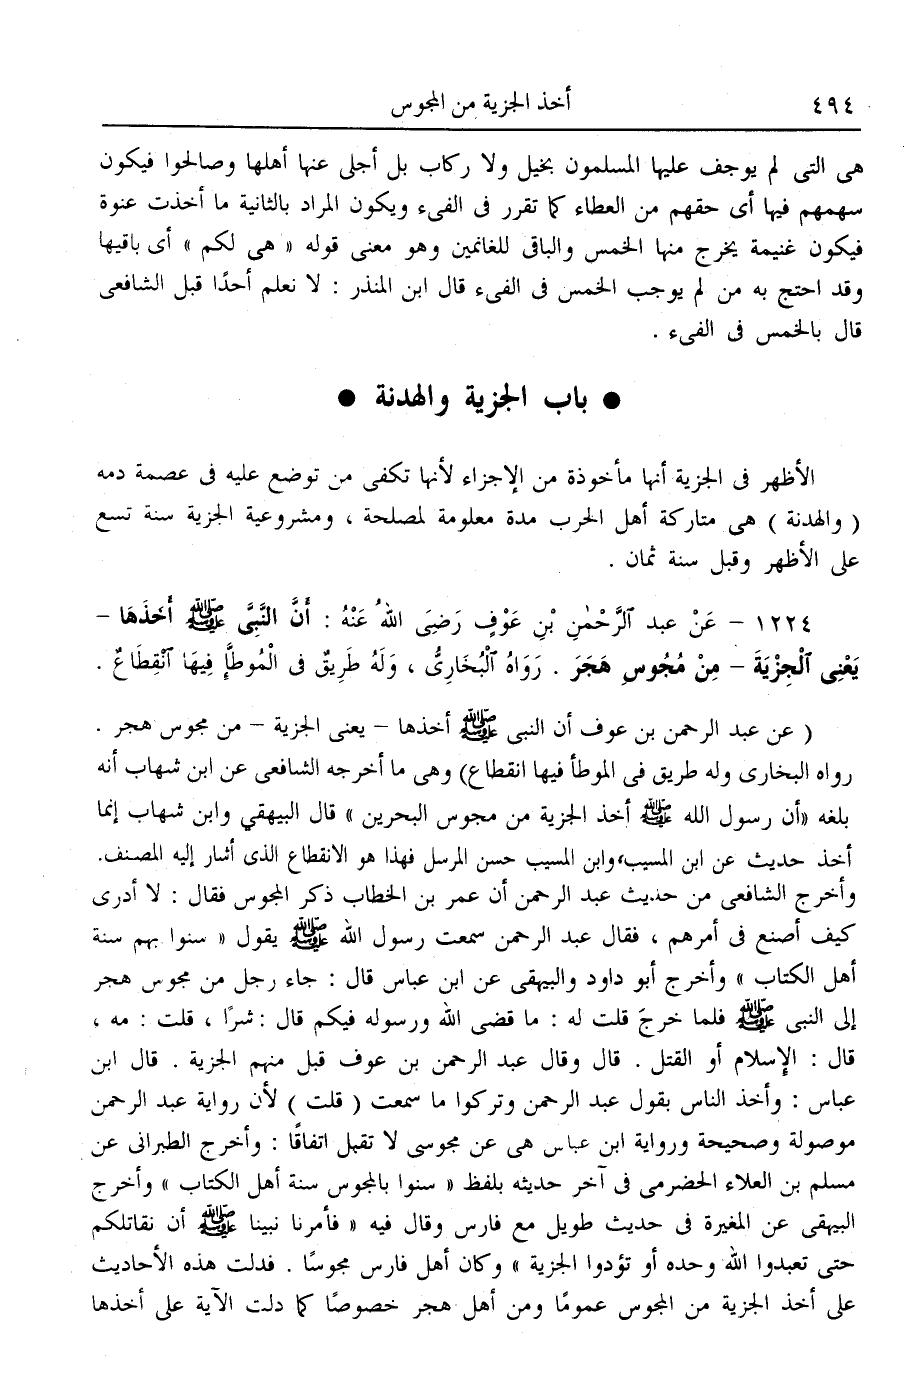 ٤٩٤ أخذ الجزية من المجوس
هى التى لم يوجف عليها المسلمون بخيل ولا ركاب بل أجلى عنها أهلها وصالحوا فيكون
سهمهم فيها أى حقهم من العطاء كما تقرر فى الفىء ويكون المراد بالثانية ما أخذت عنوة
فيكون غنيمة يخرج منها الخمس والباقى للغانمين وهو معنى قوله « هى لكم » أى باقيها
وقد احتج به من لم يوجب الخمس فى الفىء قال ابن المنذر : لا نعلم أحدًا قبل الشافعى
قال بالخمس فى الفىء .
● باب الجزية والهدنة ●
الأظهر فى الجزية أنها مأخوذة من الإجزاء لأنها تكفى من توضع عليه فى عصمة دمه
( والهدنة ) هى متاركة أهل الحرب مدة معلومة لمصلحة ، ومشروعية الجزية سنة تسع
على الأظهر وقبل سنة ثمان .
١٢٢٤ – عَنْ عبد ٱلرَّحْمٰنِ بْنِ عَوْفٍ رَضِىَ اللهُ عَنْهُ : أَنَّ النَّبِىَّ ﷺ أَخَذَهَا –
يَعْنِى ٱلْجِزْيَةَ – مِنْ مُجُوسِ هَجَرَ . رَوَاهُ ٱلْبُخَارِىُّ ، وَلَهُ طَرِيقٌ فى الْمُوطَّإِ فِيهَا ٱنْقِطَاعٌ .
( عن عبد الرحمن بن عوف أن النبى ﷺ أخذها – يعنى الجزية – من مجوس هجر .
رواه البخارى وله طريق فى الموطأ فيها انقطاع) وهى ما أخرجه الشافعى عن ابن شهاب أنه
بلغه «أن رسول الله ﷺ أخذ الجزية من مجوس البحرين » قال البيهقي وابن شهاب إنما
أخذ حديث عن ابن المسيب، وابن المسيب حسن المرسل فهذا هو الانقطاع الذى أشار إليه المصنف.
وأخرج الشافعى من حديث عبد الرحمن أن عمر بن الخطاب ذكر المجوس فقال : لا أدرى
كيف أصنع فى أمرهم ، فقال عبد الرحمن سمعت رسول الله ﷺ يقول « سنوا بهم سنة
أهل الكتاب » وأخرج أبو داود والبيهقى عن ابن عباس قال : جاء رجل من مجوس هجر
إلى النبى ﷺ فلما خرجَ قلت له : ما قضى الله ورسوله فيكم قال : شرًا ، قلت : مه ،
قال : الإسلام أو القتل . قال وقال عبد الرحمن بن عوف قبل منهم الجزية . قال ابن
عباس : وأخذ الناس بقول عبد الرحمن وتركوا ما سمعت ( قلت ) لأن رواية عبد الرحمن
موصولة وصحيحة ورواية ابن عباس هى عن مجوسى لا تقبل اتفاقًا : وأخرج الطبرانى عن
مسلم بن العلاء الحضرمى فى آخر حديثه بلفظ « سنوا بالمجوس سنة أهل الكتاب » وأخرج
البيهقى عن المغيرة فى حديث طويل مع فارس وقال فيه « فأمرنا نبينا ﷺ أن نقاتلكم
حتى تعبدوا الله وحده أو تؤدوا الجزية » وكان أهل فارس مجوسًا . فدلت هذه الأحاديث
على أخذ الجزية من المجوس عمومًا ومن أهل هجر خصوصًا كما دلت الآية على أخذها